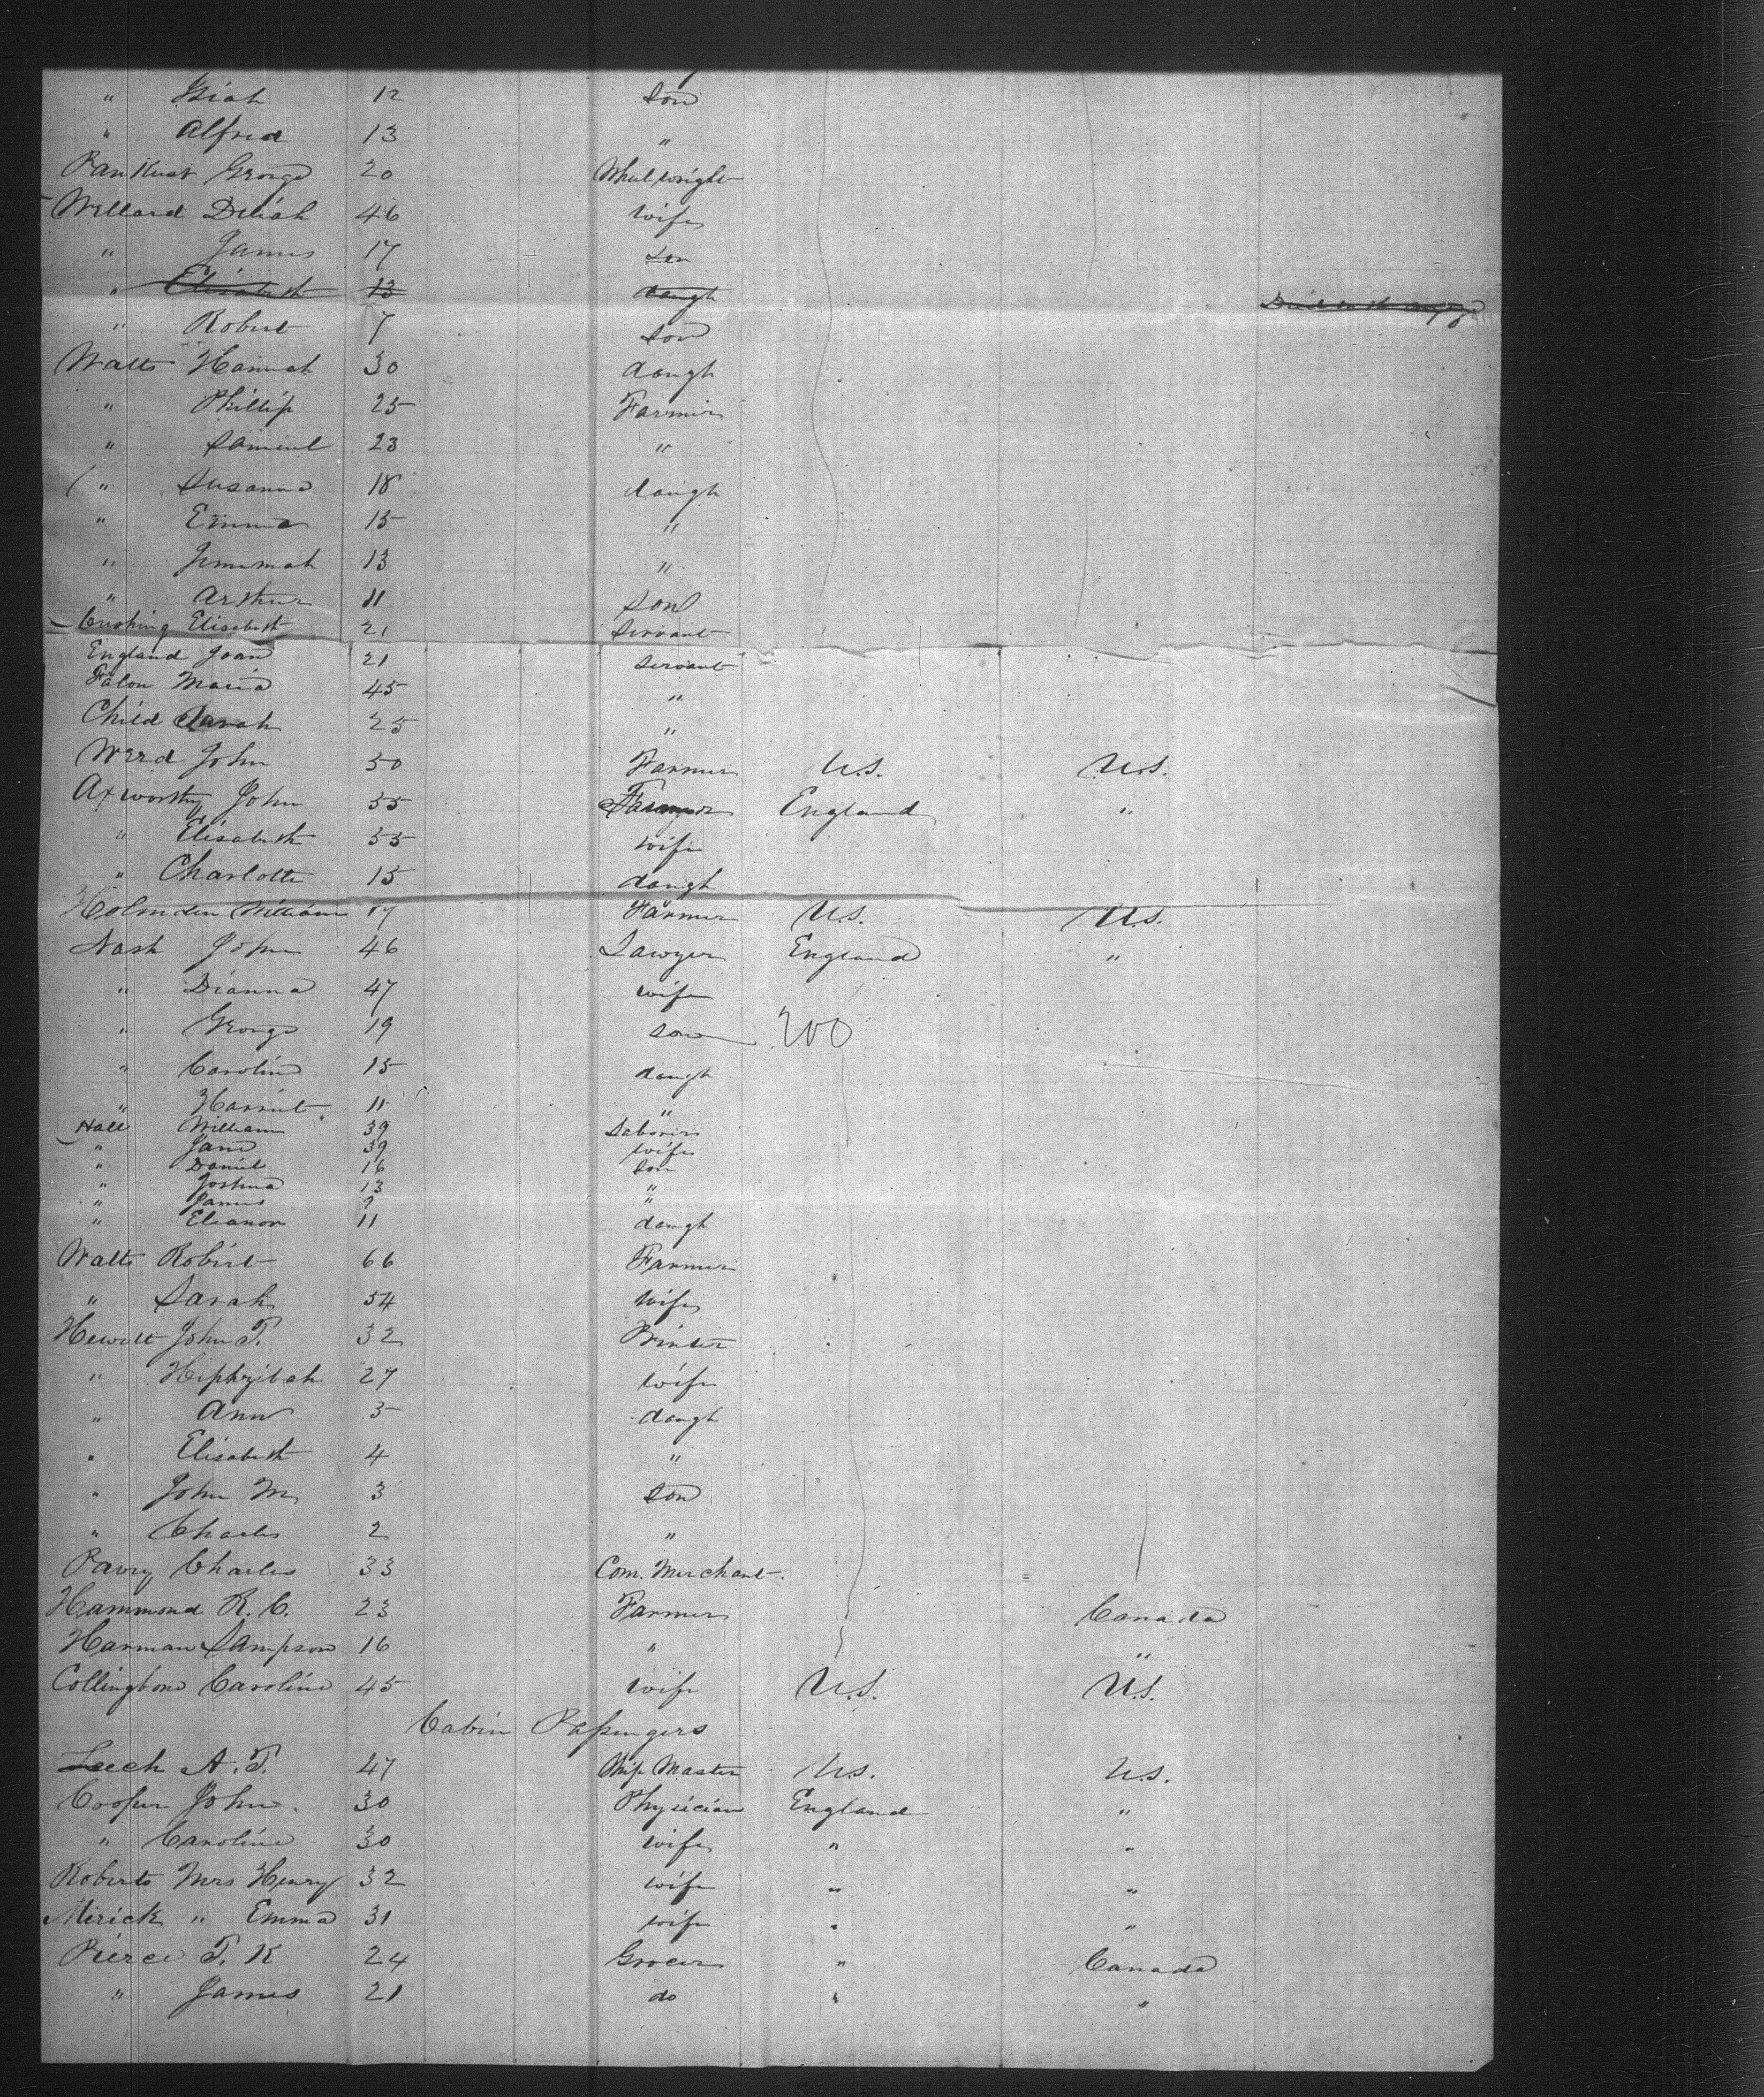 " Isiah 12 Son
" Alfred 13 "
Pankust George 20 Wheelwright
Wellard Deliah 46 wife
" James 17 son
" Elisabeth 13 daugh Died on the
" Robert 7 Son
Watts Hannah 30 daugh
" Phillip 25 Farmer
" Samuel 23 "
" Susanna 18 daugh
" Emma 15 "
" Jemimah 13 "
" Arthur 11 Son
Cushing Elisabeth 21 Servant
England Joan 21 servant
Falon Maria 45 "
Child Sarah 25 "
Werd John 50 Farmer U.S. U.S.
Axworthy John 55 Farmer England "
" Elisabeth 55 wife
" Charlotte 15 daugh
Holmden William Farmer U.S. U.S.
Nash John 46 Sawyer England "
" Dianna 47 wife
" George 19 son 200
" Caroline 15 daugh
" Harriet 11 "
Hall William 39 Laborer
" Jane 39 wife
" Daniel 16 Son
" Joshua 13 "
" James 9 "
" Eleanor 11 daugh
Watts Robert 66 Farmer
" Sarah 54 wife
Hewitt John T. 32 Printer
" Hephzibah 27 wife
" Ann 5 daugh
" Elisabeth 4 "
" John M 3 Son
" Charles 2 "
Pavry Charles 33 Com. Merchant.
Hammond R. C. 23 Farmer Canada
Harman Sampson 16 " "
Collingbone Caroline 45 wife U.S. U.S.
Cabin Passengers
Leech A. T. 47 Ship Master U.S. U.S.
Cooper John 30 Physician England "
" Caroline 30 wife " "
Roberts Mrs Henry 32 wife " "
Mirick " Emma 31 wife " "
Pierce T. K 24 Grocer " Canada
" James 21 do " "